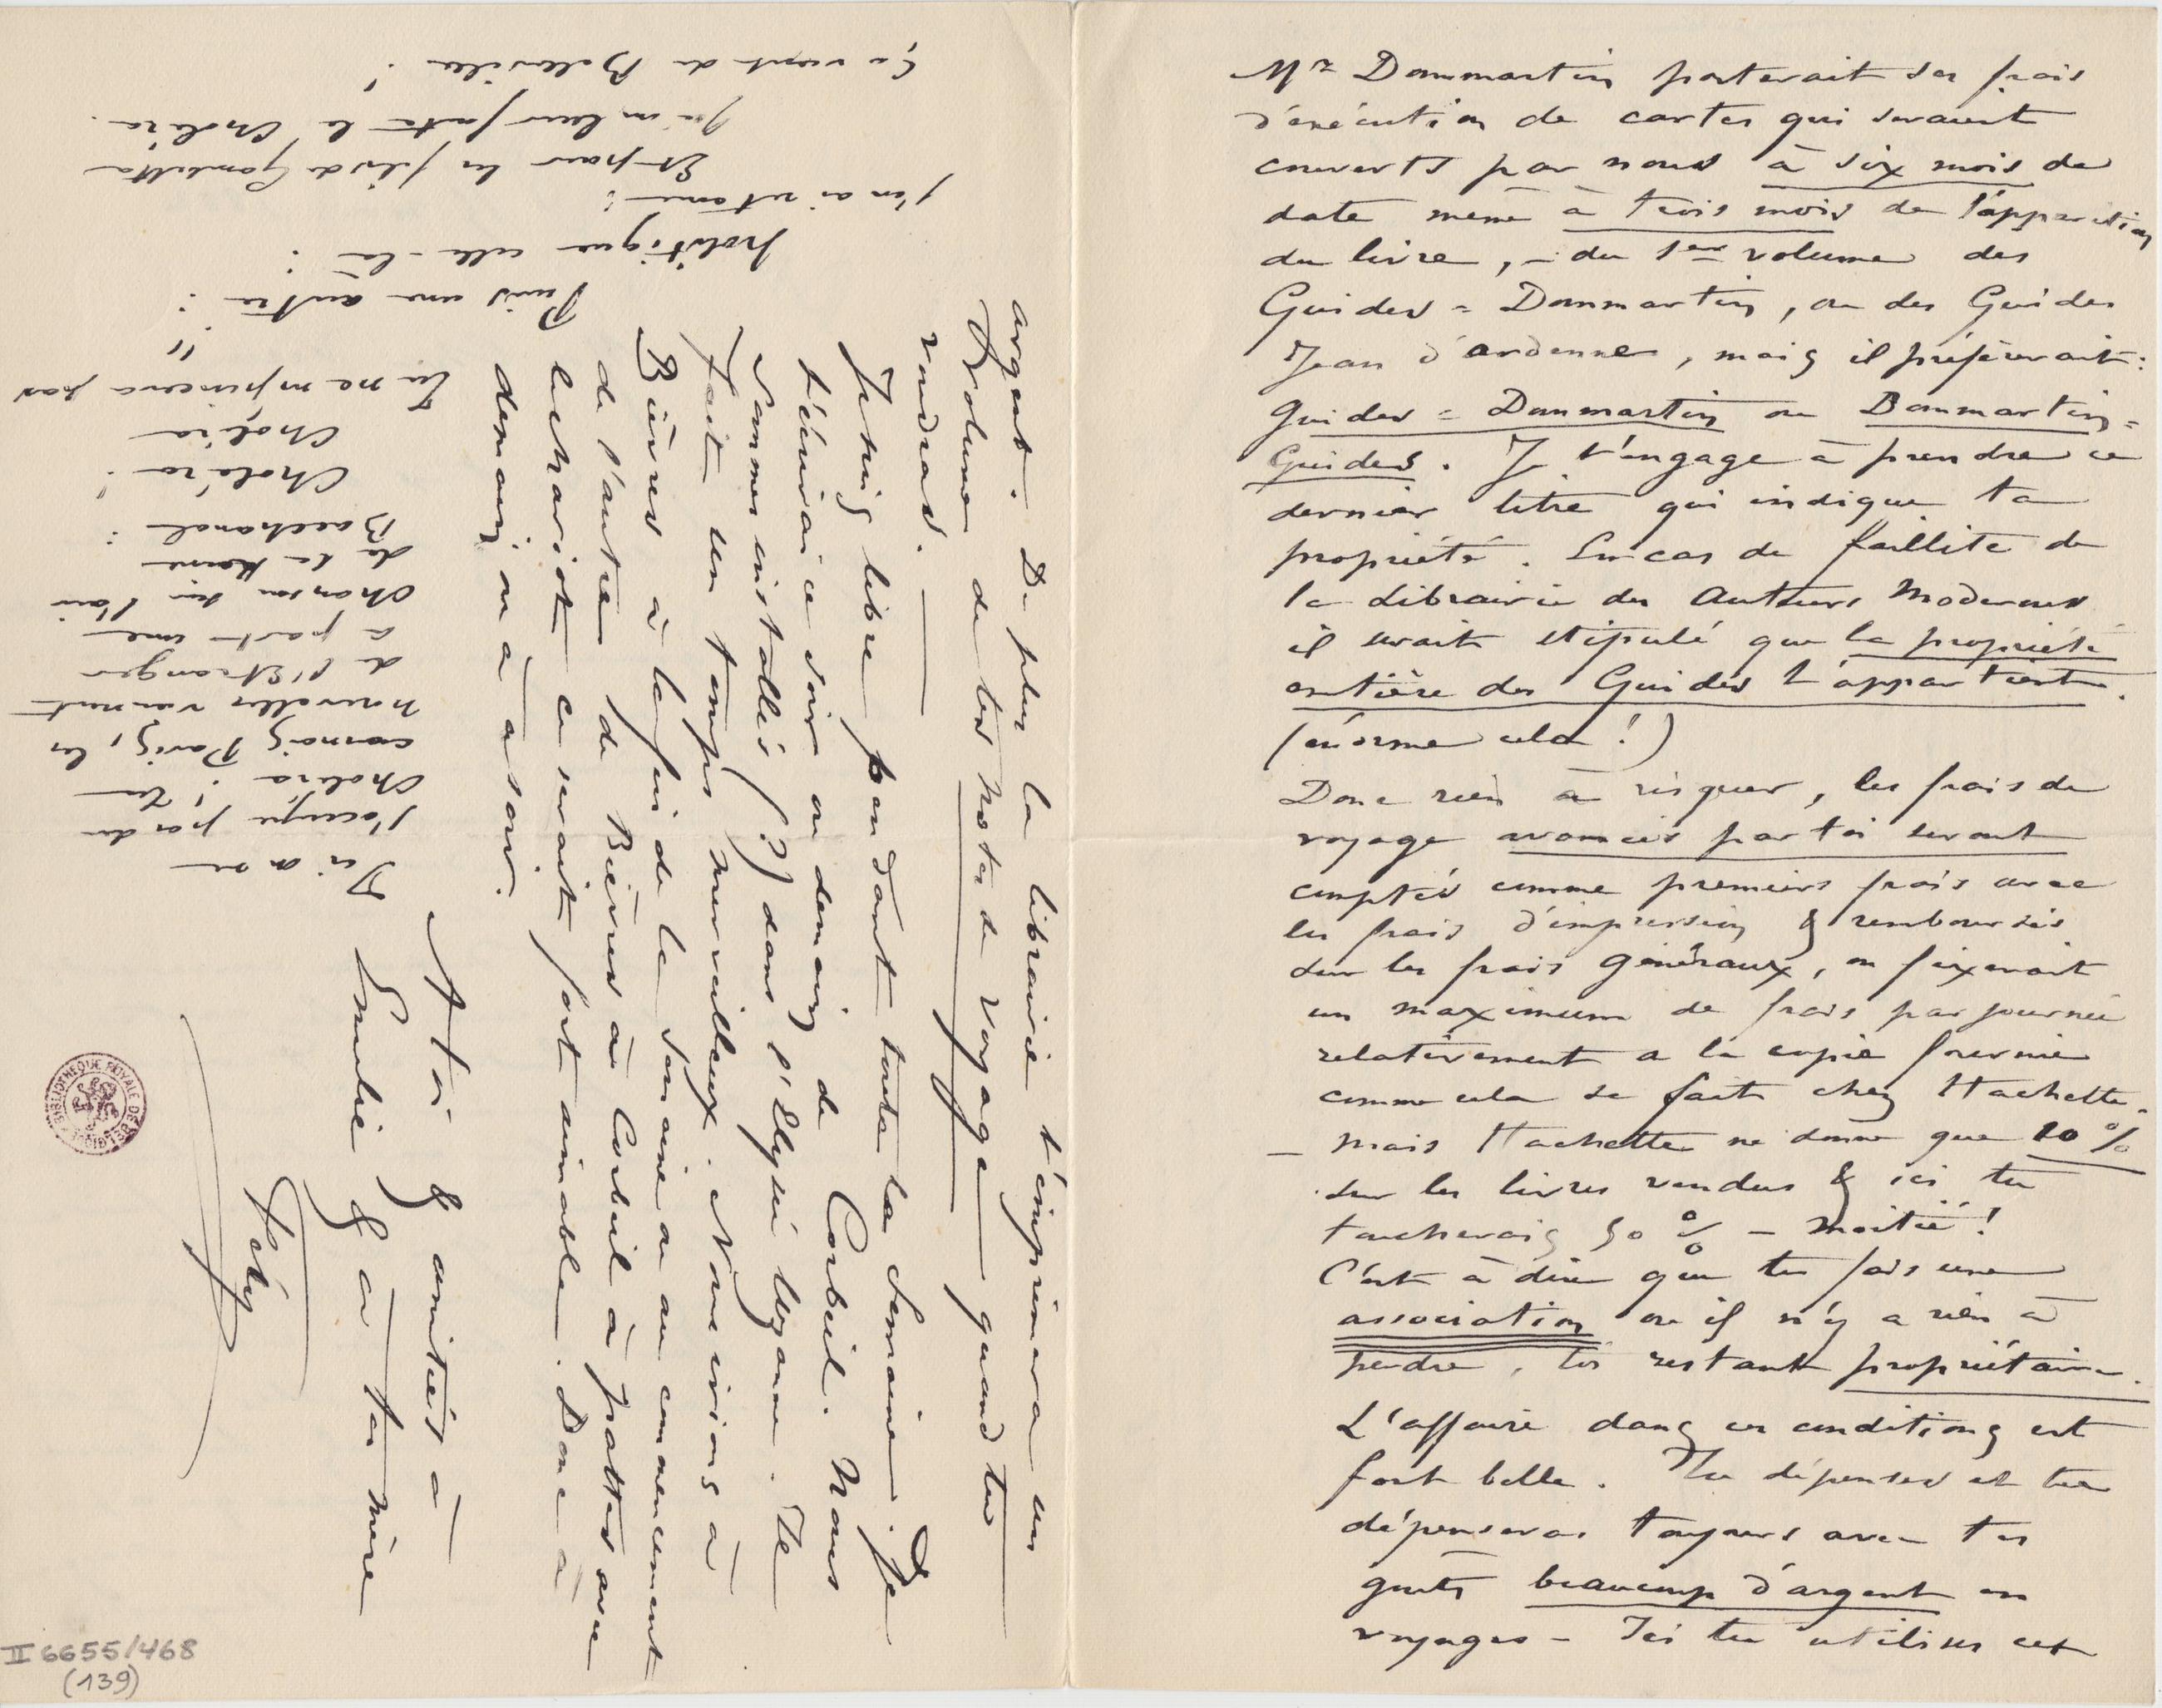 Mr Dommartin porterait ses frais
d'exécution de cartes qui seraient
couverts par nous à six mois de
date même à trois mois de l'apparition
du livre, – du 1er volume des
Guides = Dommartin, ou des Guides
Jean d'ardenne, mais il préférerait:
Guides = Dommartin ou Dommartin =
Guides. Je t'engage à prendre ce
dernier titre qui indique ta
propriété. En cas de faillite de
la Librairie des Auteurs Modernes
il serait stipulé que la propriété
entière des Guides t'appartient.
(énorme cela!)
Donc rien à risquer, les frais de
voyage avancés par toi seront
comptés comme premiers frais avec
les frais d'impression & remboursés
sur les frais généraux, on fixerait
un maximum de frais par journée
relativement a la copie fournie
comme cela se fait chez Hachette.
– Mais Hachette ne donne que 10 %
sur les livres vendus & ici tu
toucherais 50 % – moitié!
C'est à dire que tu fais une
association où il n'y a rien à
perdre, toi restant propriétaire.
L'affaire dans ces conditions est
fort belle. Tu dépenses et tu
dépenseras toujours avec tes
goûts beaucoup d'argent en
voyages – Ici tu utilises cet
argent. De plus la librairie t'imprimera un
volume de tes notes de voyage quand tu
voudras.
Je suis libre pendant toute la semaine. Je
t'écrirai ce soir ou demain de Corbeil. Nous
sommes installés (?) dans l'Elysée Uzanne. Il
fait un temps merveilleux. Nous irions à
Bièvres à la fin de la semaine ou au commencement
de l'autre de Bièvres à Corbeil à pattes avec
le chariot ce serait fort aimable. Donc à
demain ou à ce soir.
A toi & amitiés à
Emilie & à ta mère
Fély
Ici on ne
s'occupe pas du
Choléra; Tu
connais Paris, les
nouvelles viennent
de l'Etranger
à part une
chanson sur l'air
de la
Bacchanal:
Choléra!
Choléra
Tu ne m'pinceras pas
Puis une autre:
politique celle-là:
j'en ai retenu:
Et pour les fils de Gambetta
Qu'on leur foute le Choléra.
Ça vient de Belleville!
BIBLIOTHEQUE ROYALE DE BELGIQUE
II 6655/468
(139)